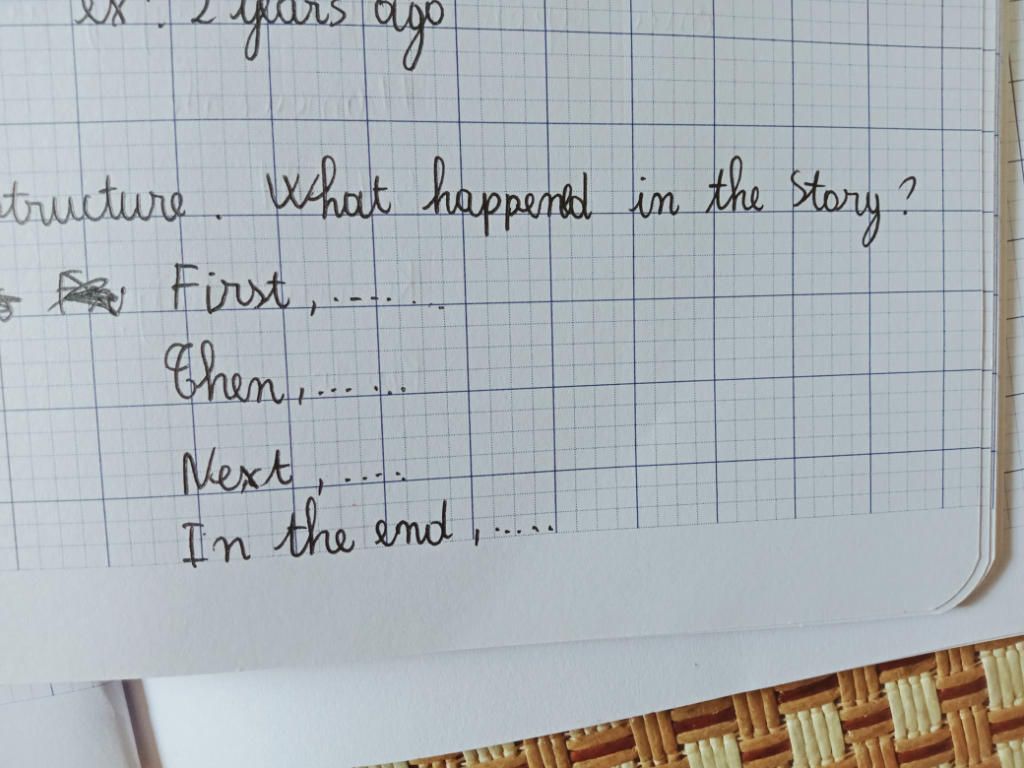 ex : 2 years ago
structure . What happened in the story?
First , .......
Then , ......
Next , .....
In the end , .....